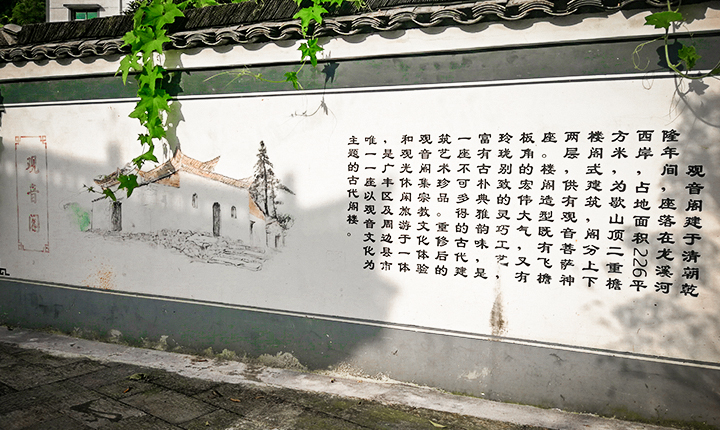 观音阁建于清朝乾
隆年间，座落在龙溪河
西岸，占地面积226平
方米，为歇山顶二重檐
楼阁式建筑，阁分上下
两层，供有观音菩萨神
座。楼阁造型既有飞檐
板角的宏伟大气，又有
玲珑别致的灵巧工艺，
富有古朴典雅韵味，是
一座不可多得的古代建
筑艺术珍品。重修后的
观音阁集宗教文化体验
和观光休闲旅游于一体
，是广丰区及周边县市
唯一一座以观音文化为
主题的古代阁楼。
观音阁